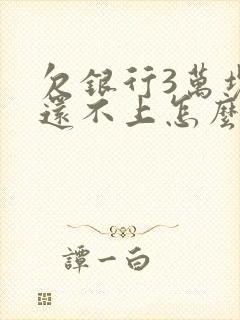 欠銀行3萬塊
還不上怎麼
譚一白